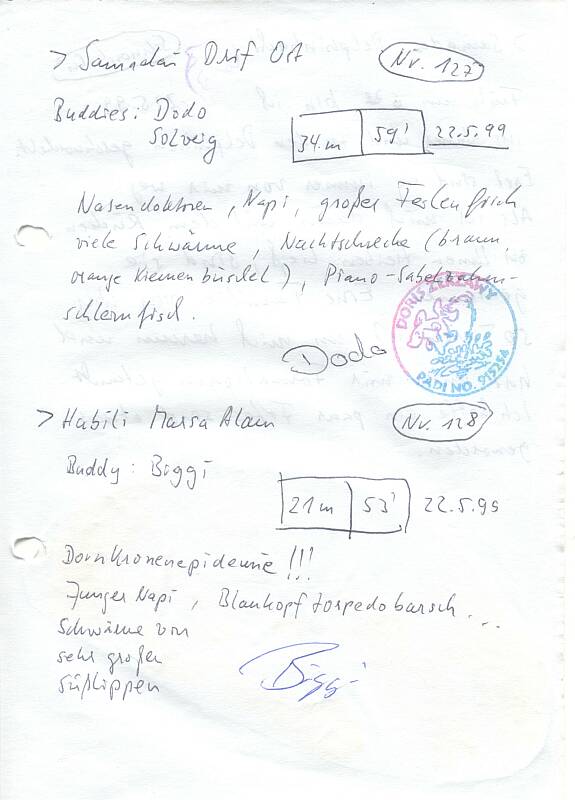 > Samadai Drif Ost Nr. 127
Buddies: Dodo
Solveig
34 m 59' 22.5.99
Nasendoktoren, Napi, großer Feilenfisch
viele Schwärme, Nachtschnecke (braun,
orange Kiemenbüschel), Piano-Säbelzahn-
schleimfisch.
DORIS ZERLAWY
PADI NO. 915256
Dodo
> Habili Marsa Alam Nr. 128
Buddy: Biggi
21 m 53' 22.5.99
Dornkronenepidemie !!!
Junger Napi, Blaukopftorpedobarsch...
Schwärme von
sehr großen
Süßlippen
Biggi